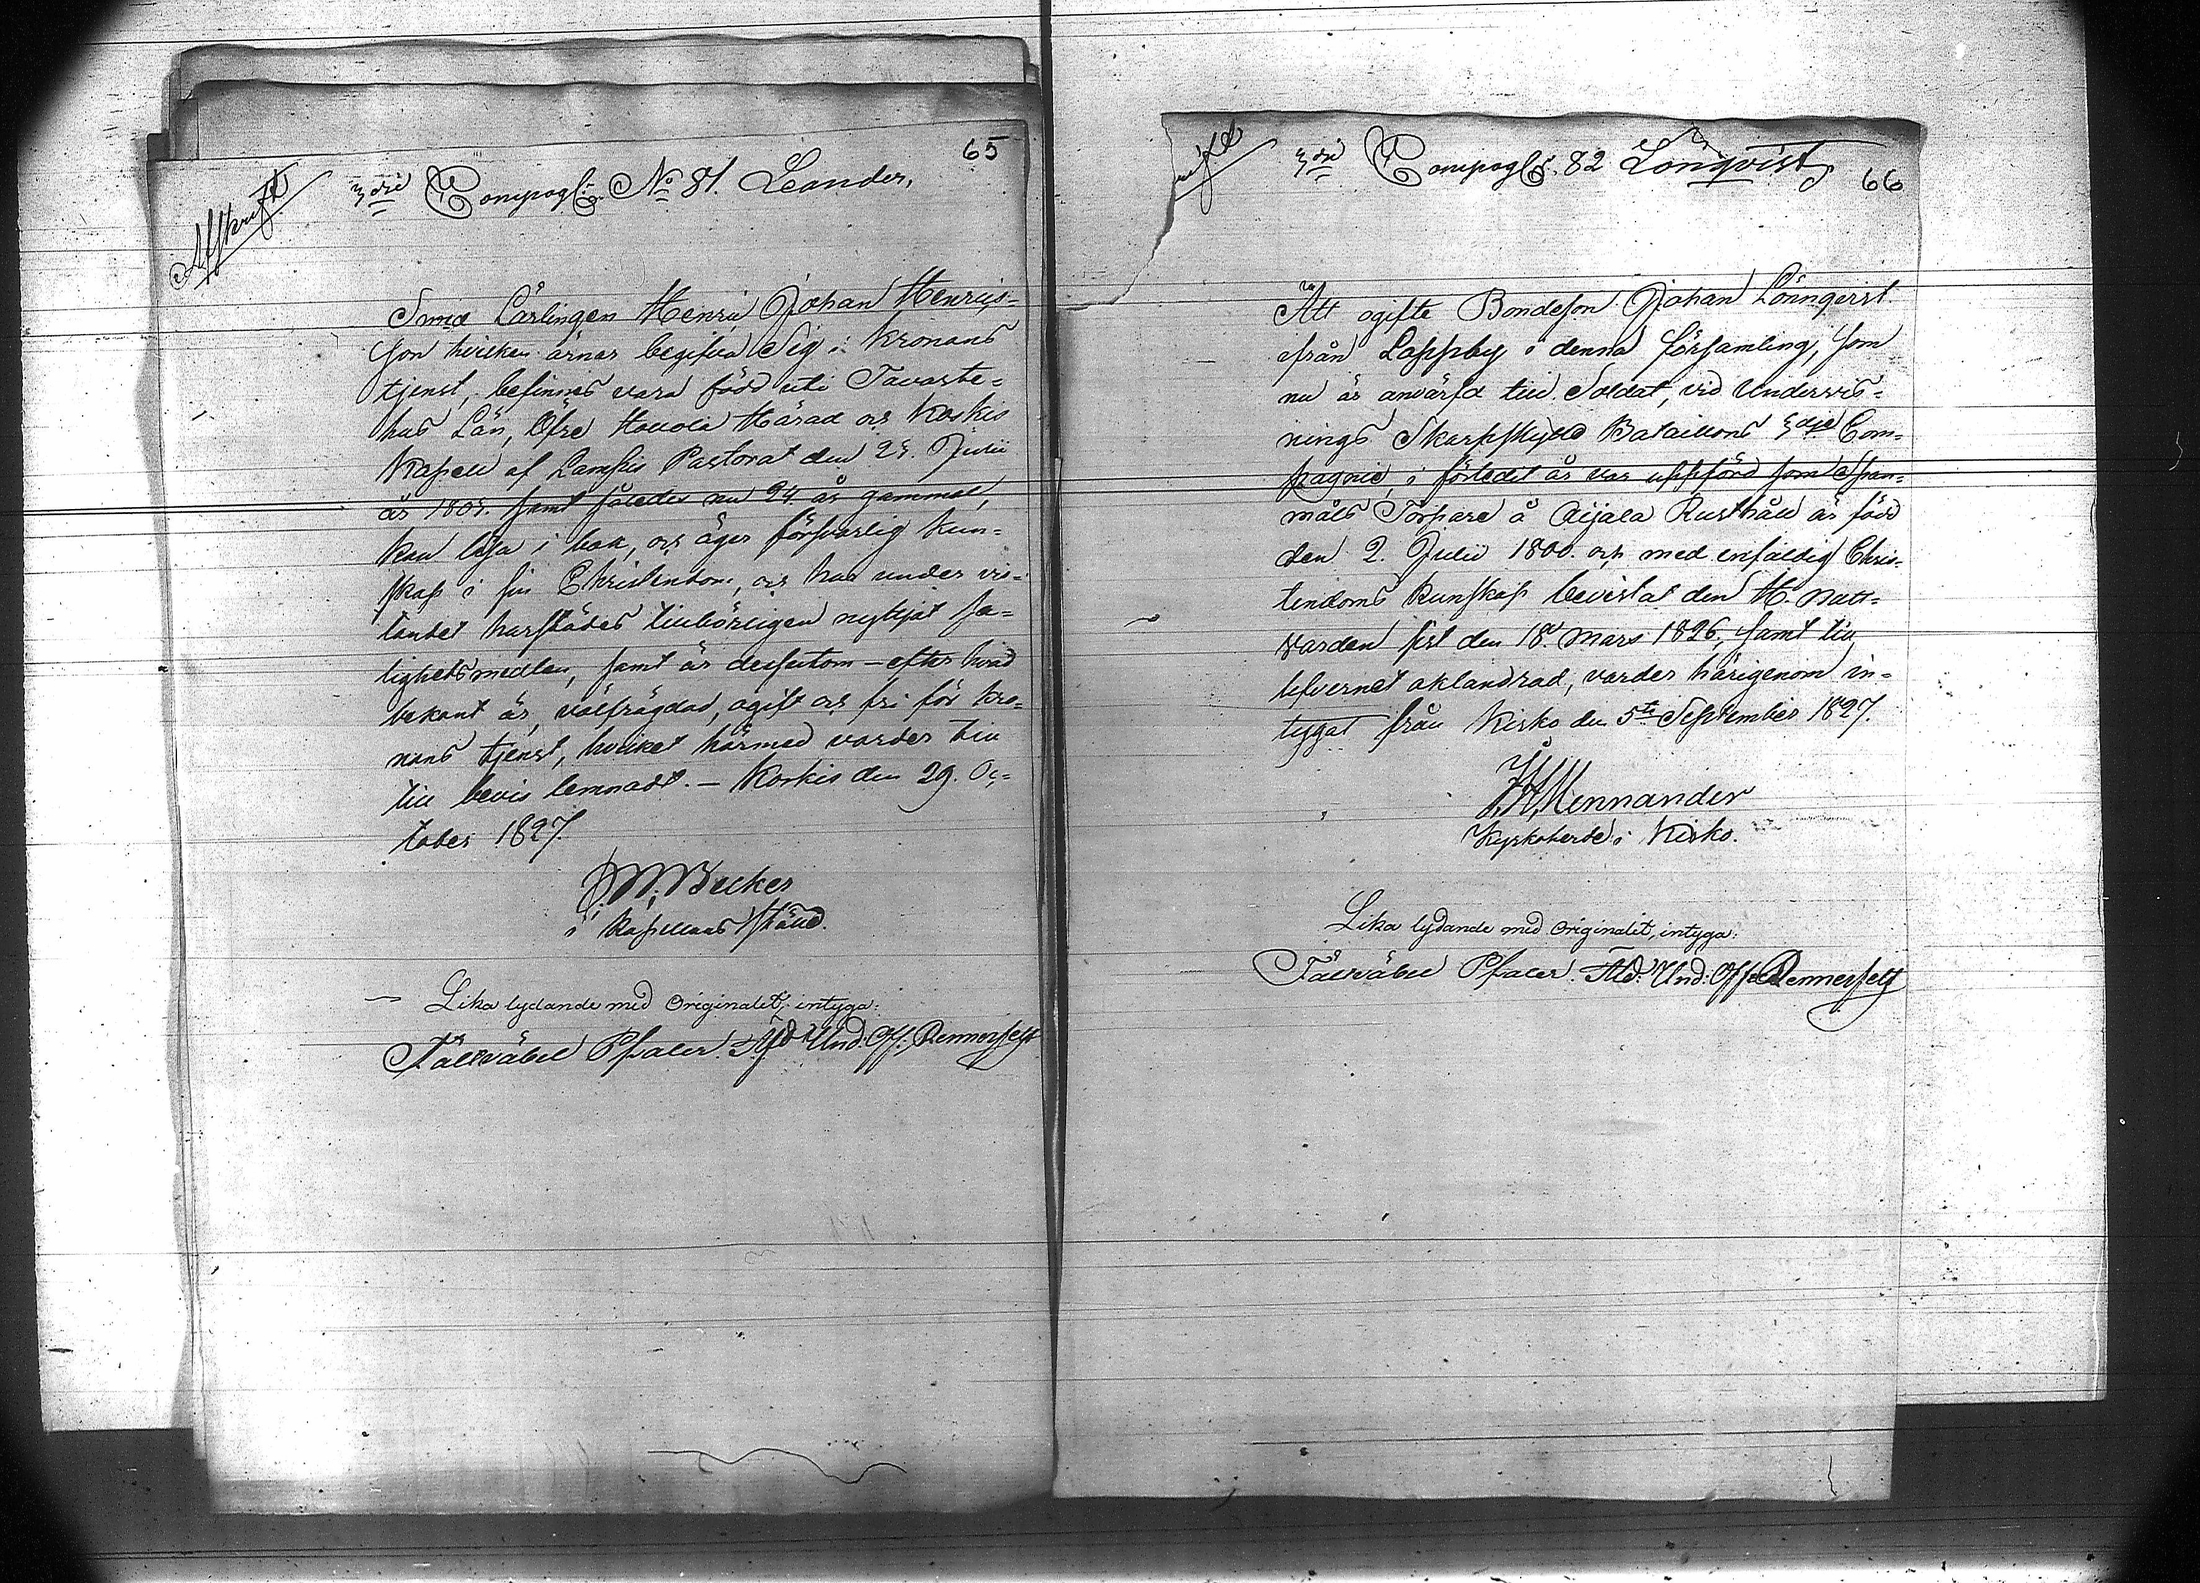 65
Afskrift
3die Compagt. No 81. Leander,
Smed Lärlingen Henric Johan Henrics-
son hvilken ärnar begifva Sig i Kronans
tjenst, befinnes vara född uti Tavaste-
hus Län, Öfre Hollola Härad och Koskis
Kapell af Lampis Pastorat den 25. Julii
år 1803. samt således nu 24 år gammal,
kan läsa i bok, och äger försvarlig kun-
skap i sin Christendom, och har under vis-
tandet härstädes tillbörligen nyttjat sa-
lighetsmedlen, samt är dessutom – efter hvad
bekant är, välfrägdad, ogift och fri för kro-
nans tjenst, hvilket härmed varder till
till bevis lemnadt. – Koskis den 29. Oc-
tober 1827.
Becker
i Kapellans ställe.
Lika lydande med Originalet, intyga:
Fältväbel Pfaler. Und: Off: Rennerfelt
66
skrift
3die Compagt. 82 Lönqvist,
Att ogifte Bondeson Johan Lönnqvist
från Lappby i denna församling, som
nu är anvärfd till Soldat, vid Undervis-
nings Skarpskytte Bataillons 3dje Com-
pagnie, i förledet år var uppförd som Span-
måls Torpare å Aijala Rusthåll är född
den 2. Julii 1800. och med enfaldig Chris-
tendoms kunskap bevistat den H. Natt-
varden sist den 18. Mars 1826, samt till
lefvernet oklandrad, varder härigenom in-
tygat från Kisko den 5te September 1827.
Mennander
Kyrkoherde i Kisko.
Lika lydande med Originalet, intyga:
Fältväbel Pfaler. Und: Off: Rennerfelt